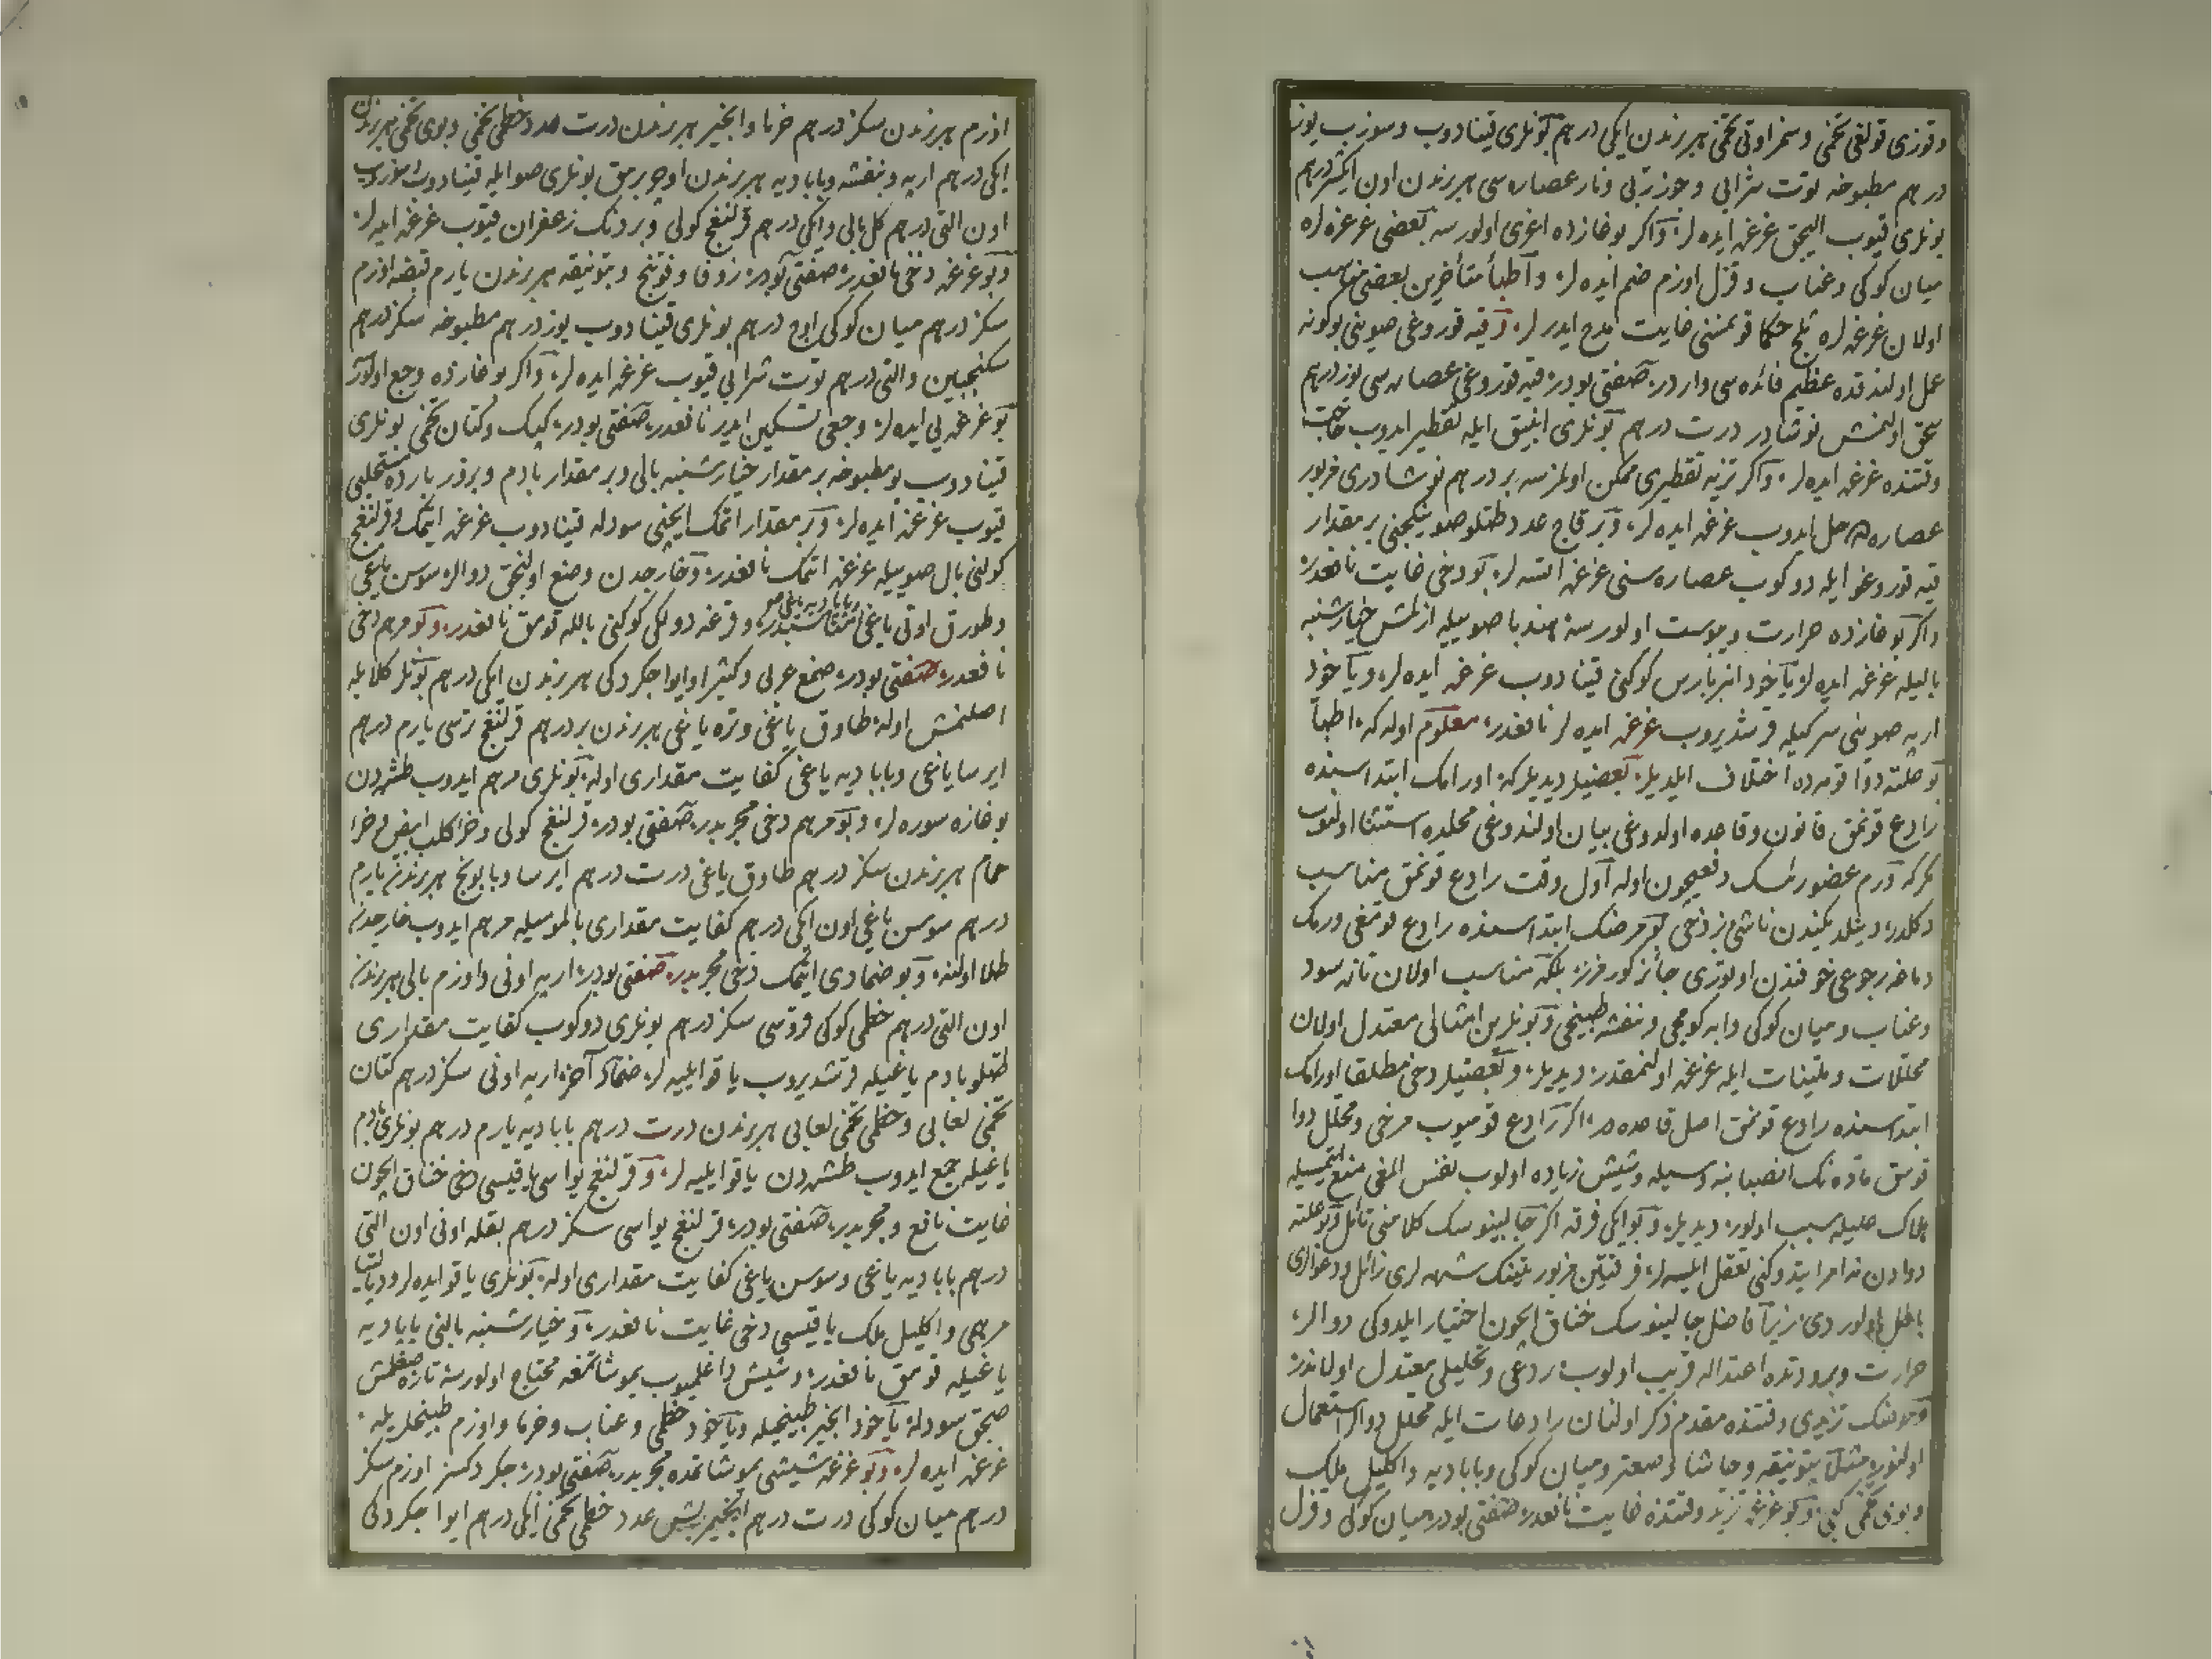 وقوزی قولغی تخمی و سمز اوتی تخمی هر برندن ایکی درهم بونلری قیناَدوب و سوزب یوز
درهم مطبوخه توت شرابی و جوز ربی و نار عصاره سی هر برندن اون ایکیشر درهم
بونلری قیوب الیجق غرغره ایده لر واکر بوغازده اغری اولورسه بعضی غرغره لره
میان کوکی و عناب و قزل اوزم ضم ایده لر و اطبأ متأخرین بعضی مناسب
اولان غرغره لره ثلج حکما قومسنی غایت مدح ایدرلر و قیه قوروغی صوینی بوکونه
عمل اولندقده عظیم فائده سی واردر صفتی بودر قیه قوروغی عصاره سی یوز درهم
سحق اولنمش نوشادر درت درهم بونلری انبیق ایله تقطیر ایدوب حاجت
وقتنده غرغره ایده لر واکر تیزیه تقطیری ممکن اولمزسه بر درهم نوشادری مزبور
عصاره ده حل ایدوب غرغره ایده لر و بر قاچ عدد طتلو صو ینکجنی بر مقدار
قیه قوروغی ایله دوکوب عصاره سنی غرغره ایتسه لر بو دخی غایت نافعدر
واکر بوغازده حرارت و یبوست اولورسه هندبا صوییله ازلمش خیارشنبه
بالیله غرغره ایده لر یاخود انبرباریس کوکنی قیناَدوب غرغره ایده لر و یاخود
اربه صوینی سرکیله قرشدیروب غرغره ایده لر نافعدر معلوم اوله که اطبأ
بو علته دوا قومه ده اختلاف ایلدیلر بعضیلر دیدیلر که اورامک ابتداسنده
رادع قومق قانون و قاعده اولدوغی بیان اولندوغی محلده استثنا اولنوب
مکر که ورم عضو رئیسک دفعیچون اوله اول وقت رادع قومق مناسب
دکلدر دینلدیکندن ناشی بز دخی بو مرضک ابتداسنده رادع قومغی ورمک
دماغه رجوعی خوفندن اولوری جائز کورمزز بلکه مناسب اولان تازه سود
و عناب و میان کوکی و ابه کومجی و بنفشه طبیخی و بونلرین امثالی معتدل اولان
محللات و ملینات ایله غرغره اولنمقدر دیدیلر و بعضیلر دخی مطلقا اورامک
ابتداسنده رادع قومق اصل قاعده در اکر رادع قومیوب مرخی و محلل دوا
قومق ماده نک انصبابنه وسیله و شیش زیاده اولوب نفس المغی منع ایتمسیله
هلاک علیله سبب اولور دیدیلر و بو ایکی فرقه اکر جالینوسک کلامنی تأمل و بو علته
دوادن نه امر ایتدوکنی تعقل ایلسه لر فرقتین مزبورتینک شبهه لری زائل و دعوالری
باطل اولوردی زیرا فاضل جالینوسک خناق ایچون اختیار ایلدوکی دوالر
حرارت و برودتده اعتداله قریب اولوب ردعی و تحلیلی معتدل اولانلردر
و مرضک تزیدی وقتنده مقدم ذکر اولنان رادعات ایله محلل دوالر استعمال
اولنور مثلا بتونیقه و حاشا و سعتر و میان کوکی و بابادیه و اکلیل ملک
و بوی تخمی کبی و بو غرغره تزید وقتنده غایت نافعدر صفتی بودر میان کوکی و قزل
اوزم هر برندن سکز درهم خرما و انجیر هر برندن درت عدد خطمی تخمی و بوی تخمی هر برندن
ایکی درهم اربه و بنفشه و بابادیه هر برندن اوچ برمق بونلری صو ایله قیناَدوب سوزوب
اون التی درهم کل بالی و ایکی درهم قرلنغج کولی و بر دنک زعفران قیوب غرغره ایده لر
و بو غرغره دخی نافعدر صفتی بودر زوفا و فوتنج و بتونیقه هر برندن یارم قبضه اوزم
سکز درهم میان کوکی اوچ درهم بونلری قیناَدوب یوز درهم مطبوخه سکز درهم
سکنجبین و التی درهم توت شرابی قیوب غرغره ایده لر واکر بوغازده وجع اولور
بو غرغره یی ایده لر وجعی تسکین ایدر نافعدر صفتی بودر کپک و کتان تخمی بونلری
قیناَدوب بو مطبوخه بر مقدار خیارشنبه بالی و بر مقدار بادم و بزور بارده مستحلبی
قیوب غرغره ایده لر و بر مقدار اتمک ایچنی سودله قیناَدوب غرغره ایتمک و قرلنغج
کولنی بال صوییله غرغره ایتمک نافعدر و خارجدن وضع اولنجق دوالر سوسن یاغی
و طورق اوتی یاغی و بابادیه یاغی مناسبدر و قرغه دولکی کوکنی بالله قومق نافعدر و بو مرهم دخی
نافعدر صفتی بودر صمغ عربی و کثیرا و ایوا جکردکی هر برندن ایکی درهم بونلر کلابله
اصلنمش اوله طاوق یاغی و تره یاغی هر برندن بر درهم قرلنغج ترسی یارم درهم
ایرسا یاغی و بابادیه یاغی کفایت مقداری اوله بونلری مرهم ایدوب طشره دن
بوغازه سوره لر و بو مرهم دخی مجربدر صفتی بودر قرلنغج کولی و خرا کلب ابیض و خرا
حمام هر برندن سکز درهم طاوق یاغی درت درهم ایرسا و بابونج هر برندن یارم
درهم سوسن یاغی اون ایکی درهم کفایت مقداری بالمومیله مرهم ایدوب خارجدن
طلا اولنه و بو ضمادی ایتمک دخی مجربدر صفتی بودر اربه اونی و اوزم بالی هر برندن
اون التی درهم خطمی کوکی قروسی سکز درهم بونلری دوکوب کفایت مقداری
طتلو بادم یاغیله قرشدیروب یاقو ایلیه لر ضماد آخر اربه اونی سکز درهم کتان
تخمی لعابی و خطمی تخمی لعابی هر برندن درت درهم بابادیه یارم درهم بونلری بادم
یاغیله جمع ایدوب طشره دن یاقو ایلیه لر و قرلنغج یواسی یاقیسی دخی خناق ایچون
غایت نافع و مجربدر صفتی بودر قرلنغج یواسی سکز درهم بقله اونی اون التی
درهم بابادیه یاغی و سوسن یاغی کفایت مقداری اوله بونلری یاقو ایده لر و دیالتیا
مرهمی و اکلیل ملک یاقیسی دخی غایت نافعدر و خیارشنبه بالنی بابادیه
یاغیله قومق نافعدر و شیش داغلمیوب یومشاتمغه محتاج اولورسه تازه صغلمش
صجق سودله یاخود انجیر طبیخیله و یاخود خطمی و عناب و خرما و اوزم طبیخلریله
غرغره ایده لر و بو غرغره شیشی یومشاتمده مجربدر صفتی بودر جکردکسز اوزم سکز
درهم میان کوکی درت درهم انجیر بش عدد خطمی تخمی ایکی درهم ایوا جکردکی